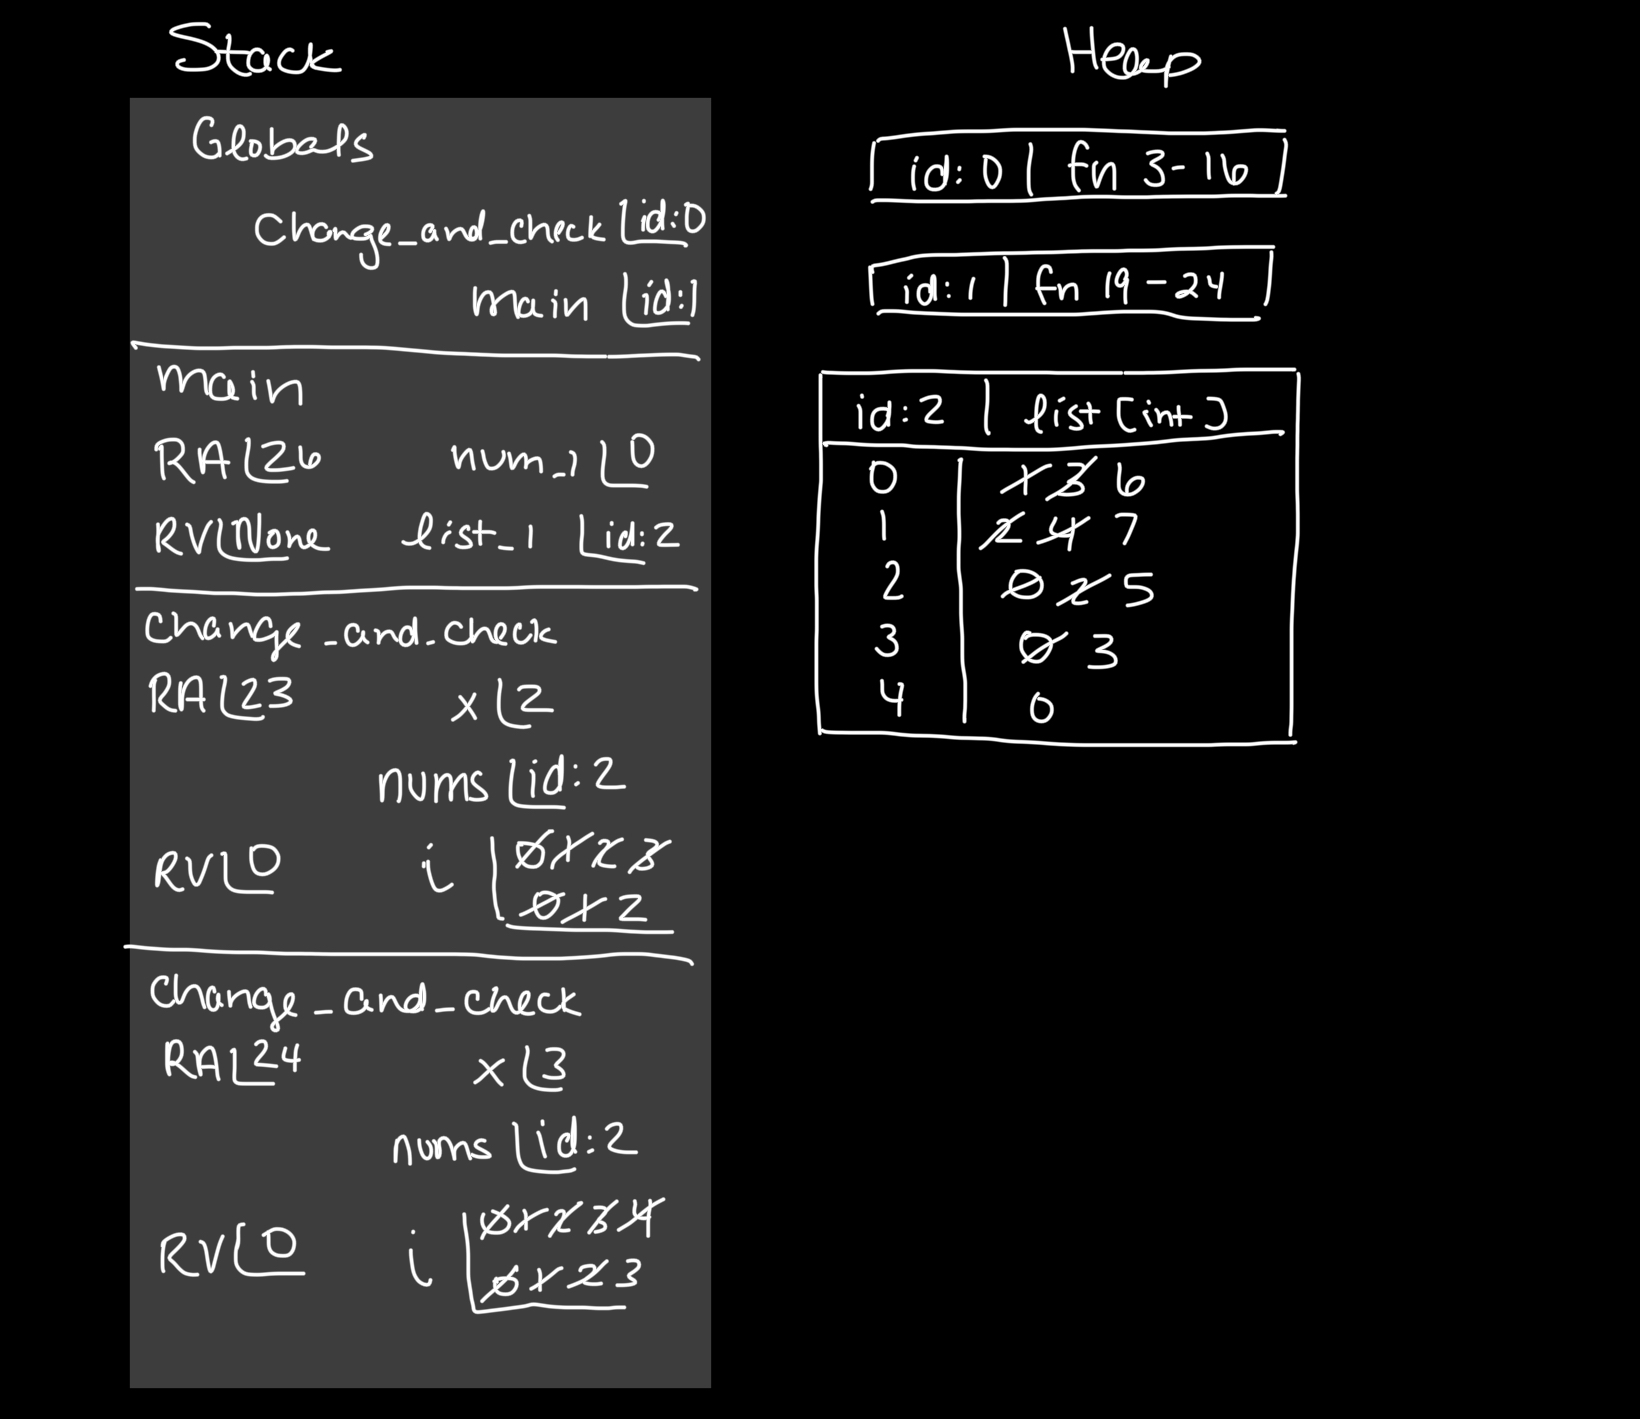 Stack
Globals
Change_and_check id:0
main id:1
main
RA 26 num_1 0
RV None list_1 id:2
Change_and_check
RA 23 x 2
nums id:2
RV 0 i 0 1 2 3
0 1 2
Change_and_check
RA 24 x 3
nums id:2
RV 0 i 0 1 2 3 4
0 1 2 3
Heap
id: 0 | fn 3-16
id: 1 | fn 19-24
id: 2 | list[int]
0 1 3 6
1 2 4 7
2 0 2 5
3 0 3
4 0